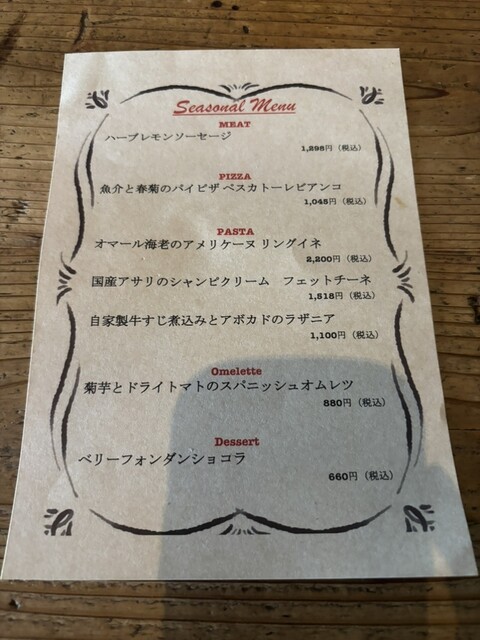 Seasonal Menu
MEAT
ハーブレモンソーセージ
1,298円（税込）
PIZZA
魚介と春菊のパイピザ ペスカトーレビアンコ
1,045円（税込）
PASTA
オマール海老のアメリケーヌ リングイネ
2,200円（税込）
国産アサリのシャンピクリーム　フェットチーネ
1,518円（税込）
自家製牛すじ煮込みとアボカドのラザニア
1,100円（税込）
Omelette
菊芋とドライトマトのスパニッシュオムレツ
880円（税込）
Dessert
ベリーフォンダンショコラ
660円（税込）